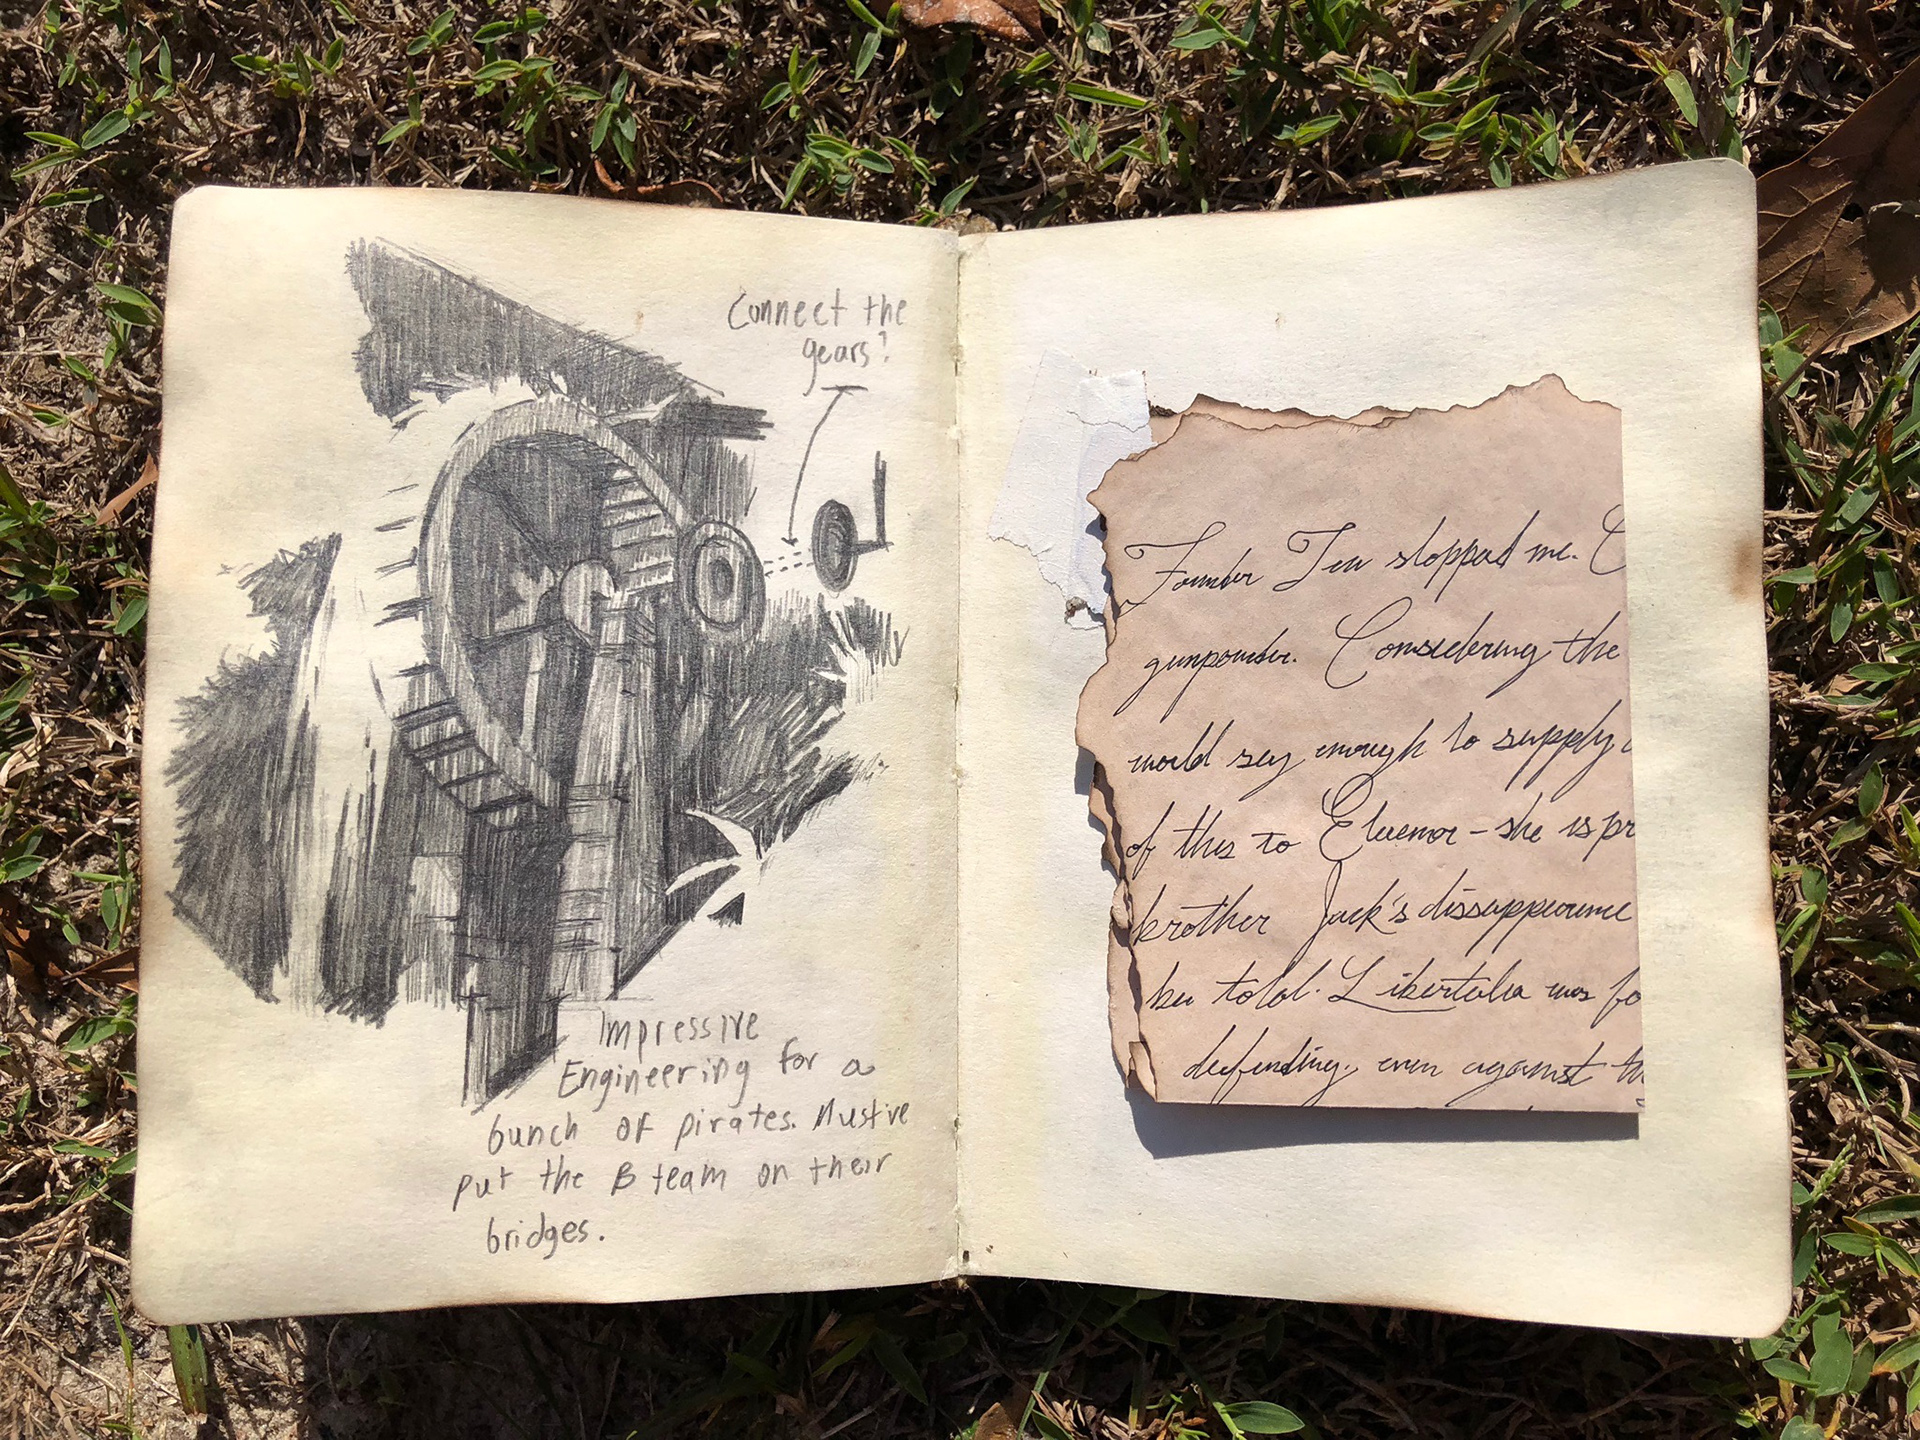 Connect the
gears?
Impressive
Engineering for a
bunch of pirates. Must've
put the B team on their
bridges.
Founder Tew stopped me. C
gunpowder. Considering the
would say enough to supply
of this to Eleenor - she is pr
brother Jack's dissappearence
be told. Libertalia was fo
defending, even against th